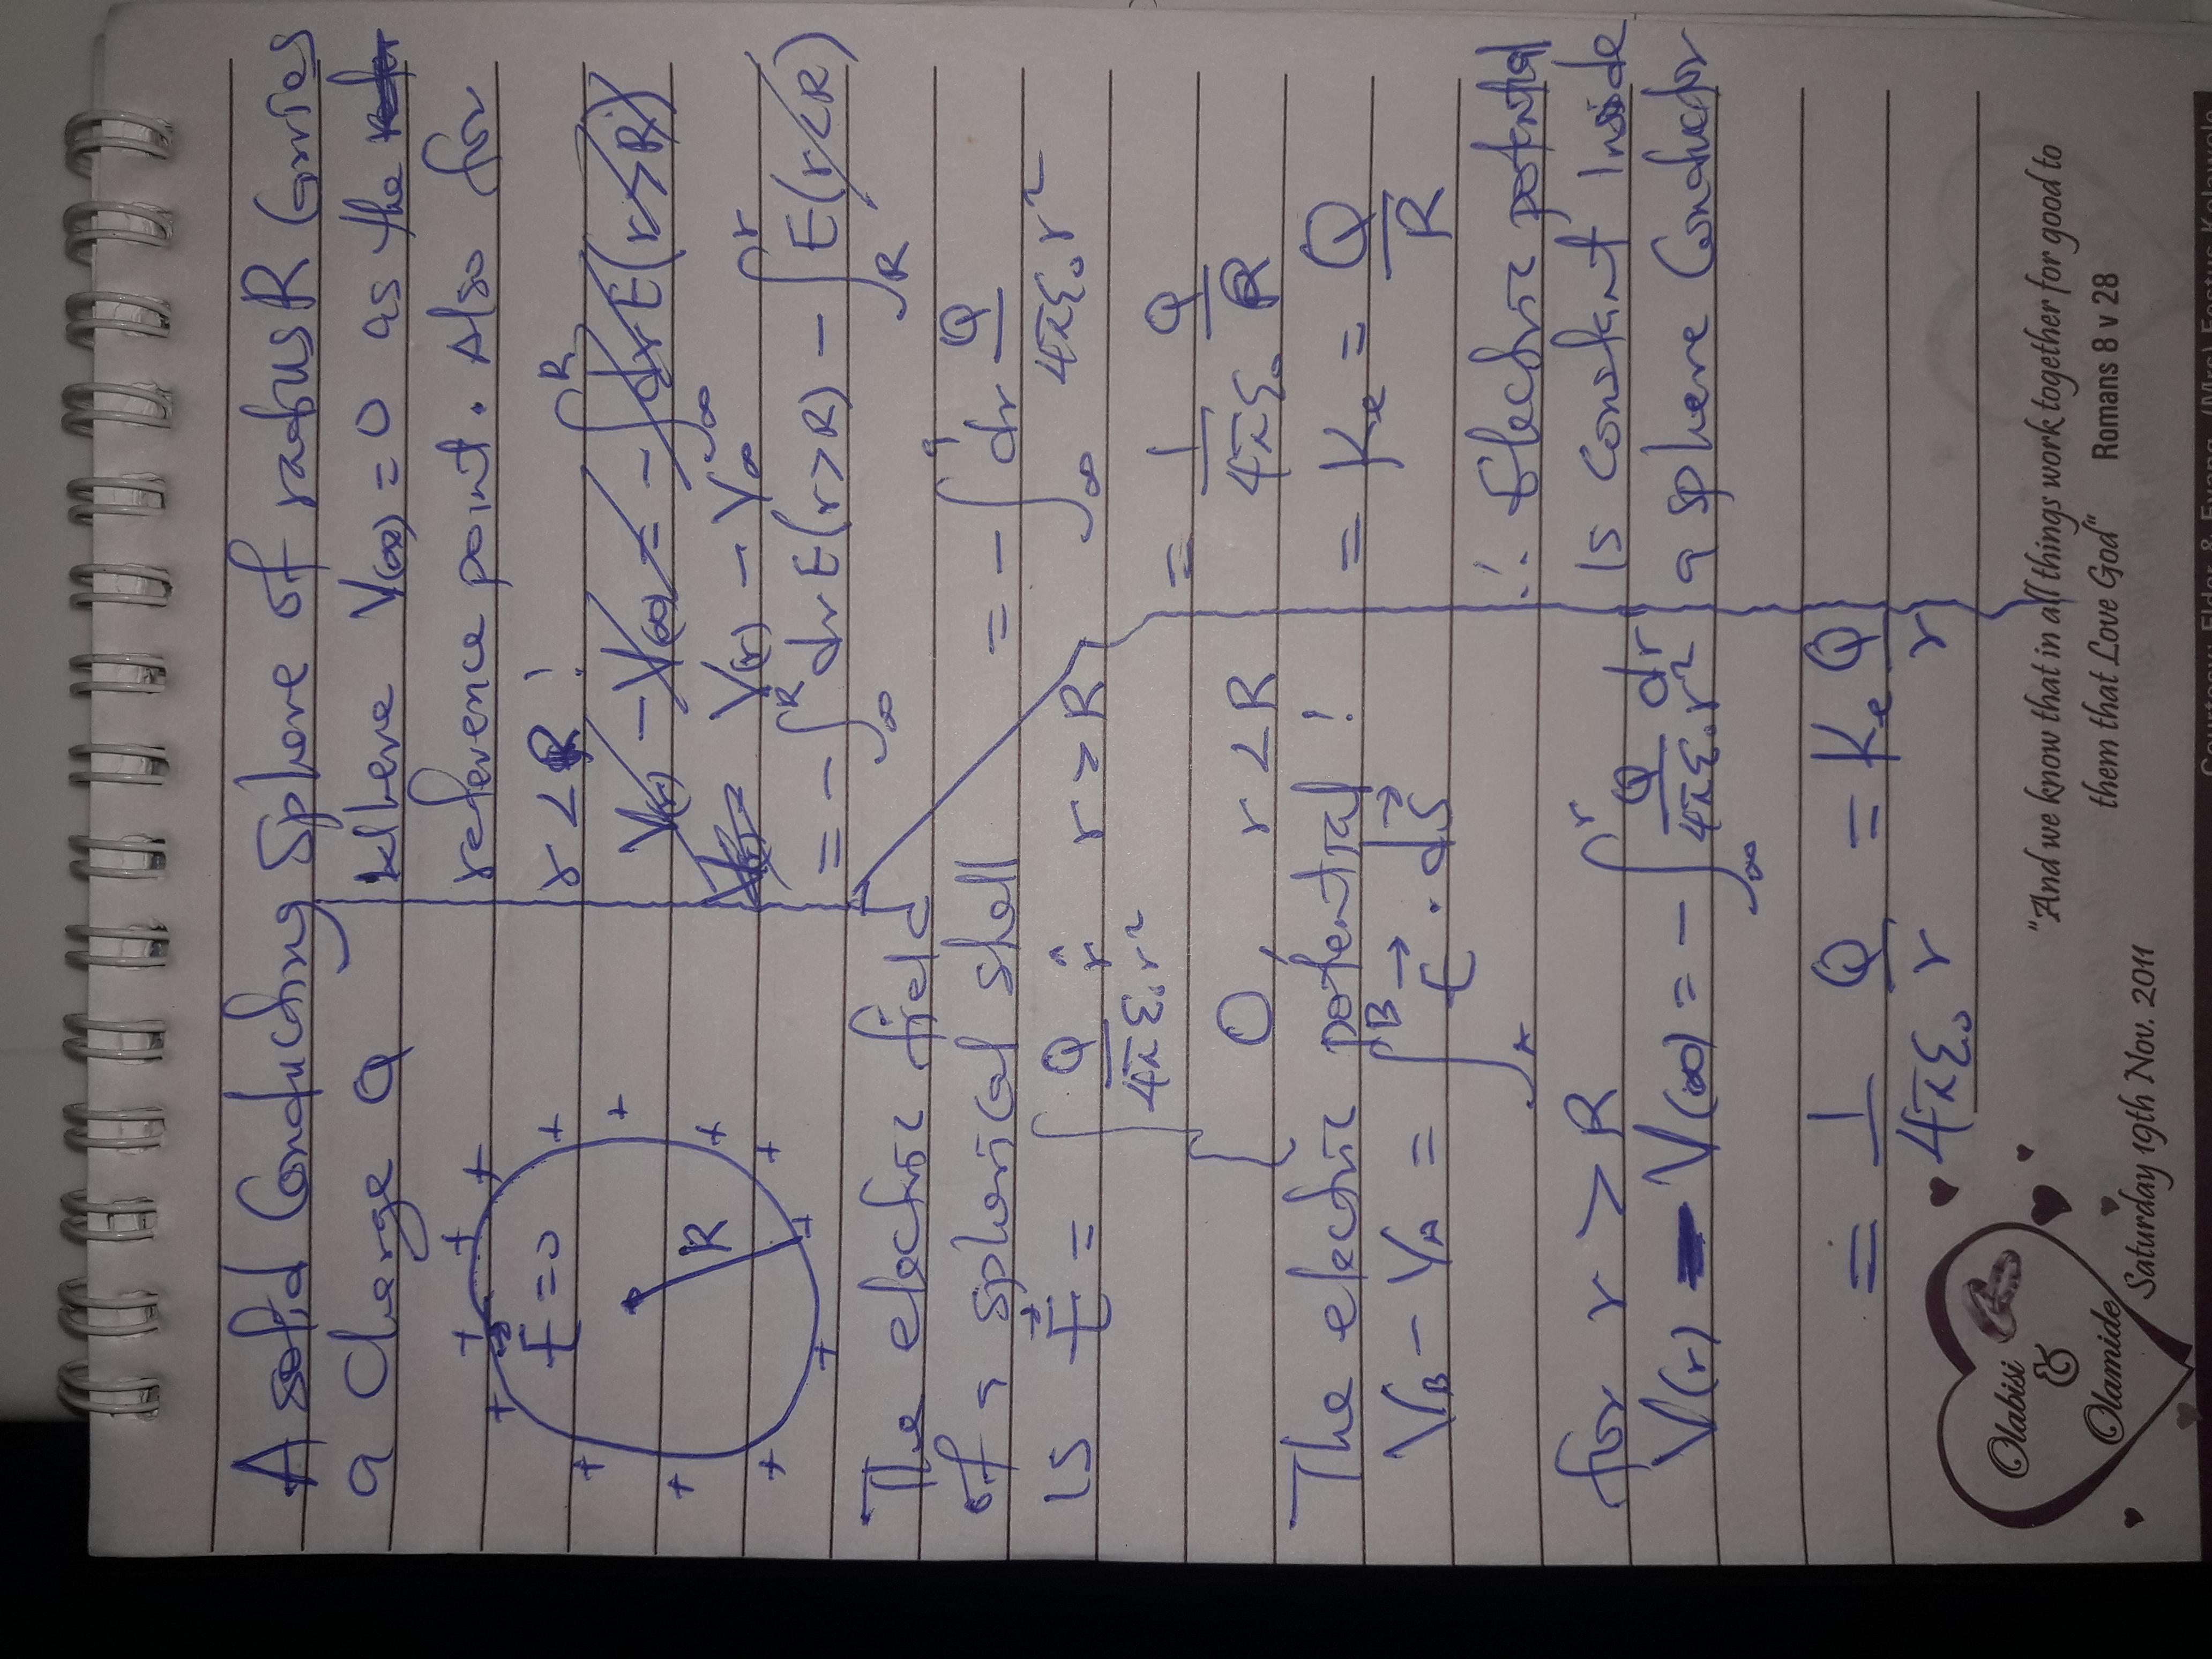 A solid Conducting Sphere of radius R Carries
a Charge Q
E = 0
R
+ + + + + + + + + + + + +
The electric field
of a spherical shell
is E⃗ = { Q/4πε₀r² r̂  r > R
0,  r < R
The electric potential!
V_B − V_A = ∫_A^B E⃗ · ds⃗
for r > R
V(r) − V(∞) = −∫_∞^r Q/4πε₀r² dr
= 1/4πε₀ Q/r = Kₑ Q/r
where V(∞) = 0 as the
reference point. Also for
r < R!
V(r) − V(∞) = −∫_∞^R dr E(r>R)
V(r) − V_∞
= −∫_∞^R dr E(r>R) − ∫_R^r E(r<R)
= −∫_∞ dr Q/4πε₀r²
= 1/4πε₀ Q/R
= Kₑ = Q/R
∴ Electric potential
is constant Inside
a sphere Conductor
Olabisi
&
Olamide
Saturday 19th Nov. 2011
"And we know that in all things work together for good to
them that Love God" Romans 8 v 28